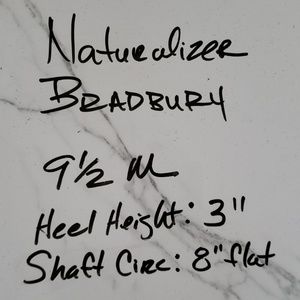 Naturalizer
BRADBURY
9 1/2 M
Heel Height: 3"
Shaft Circ: 8" flat